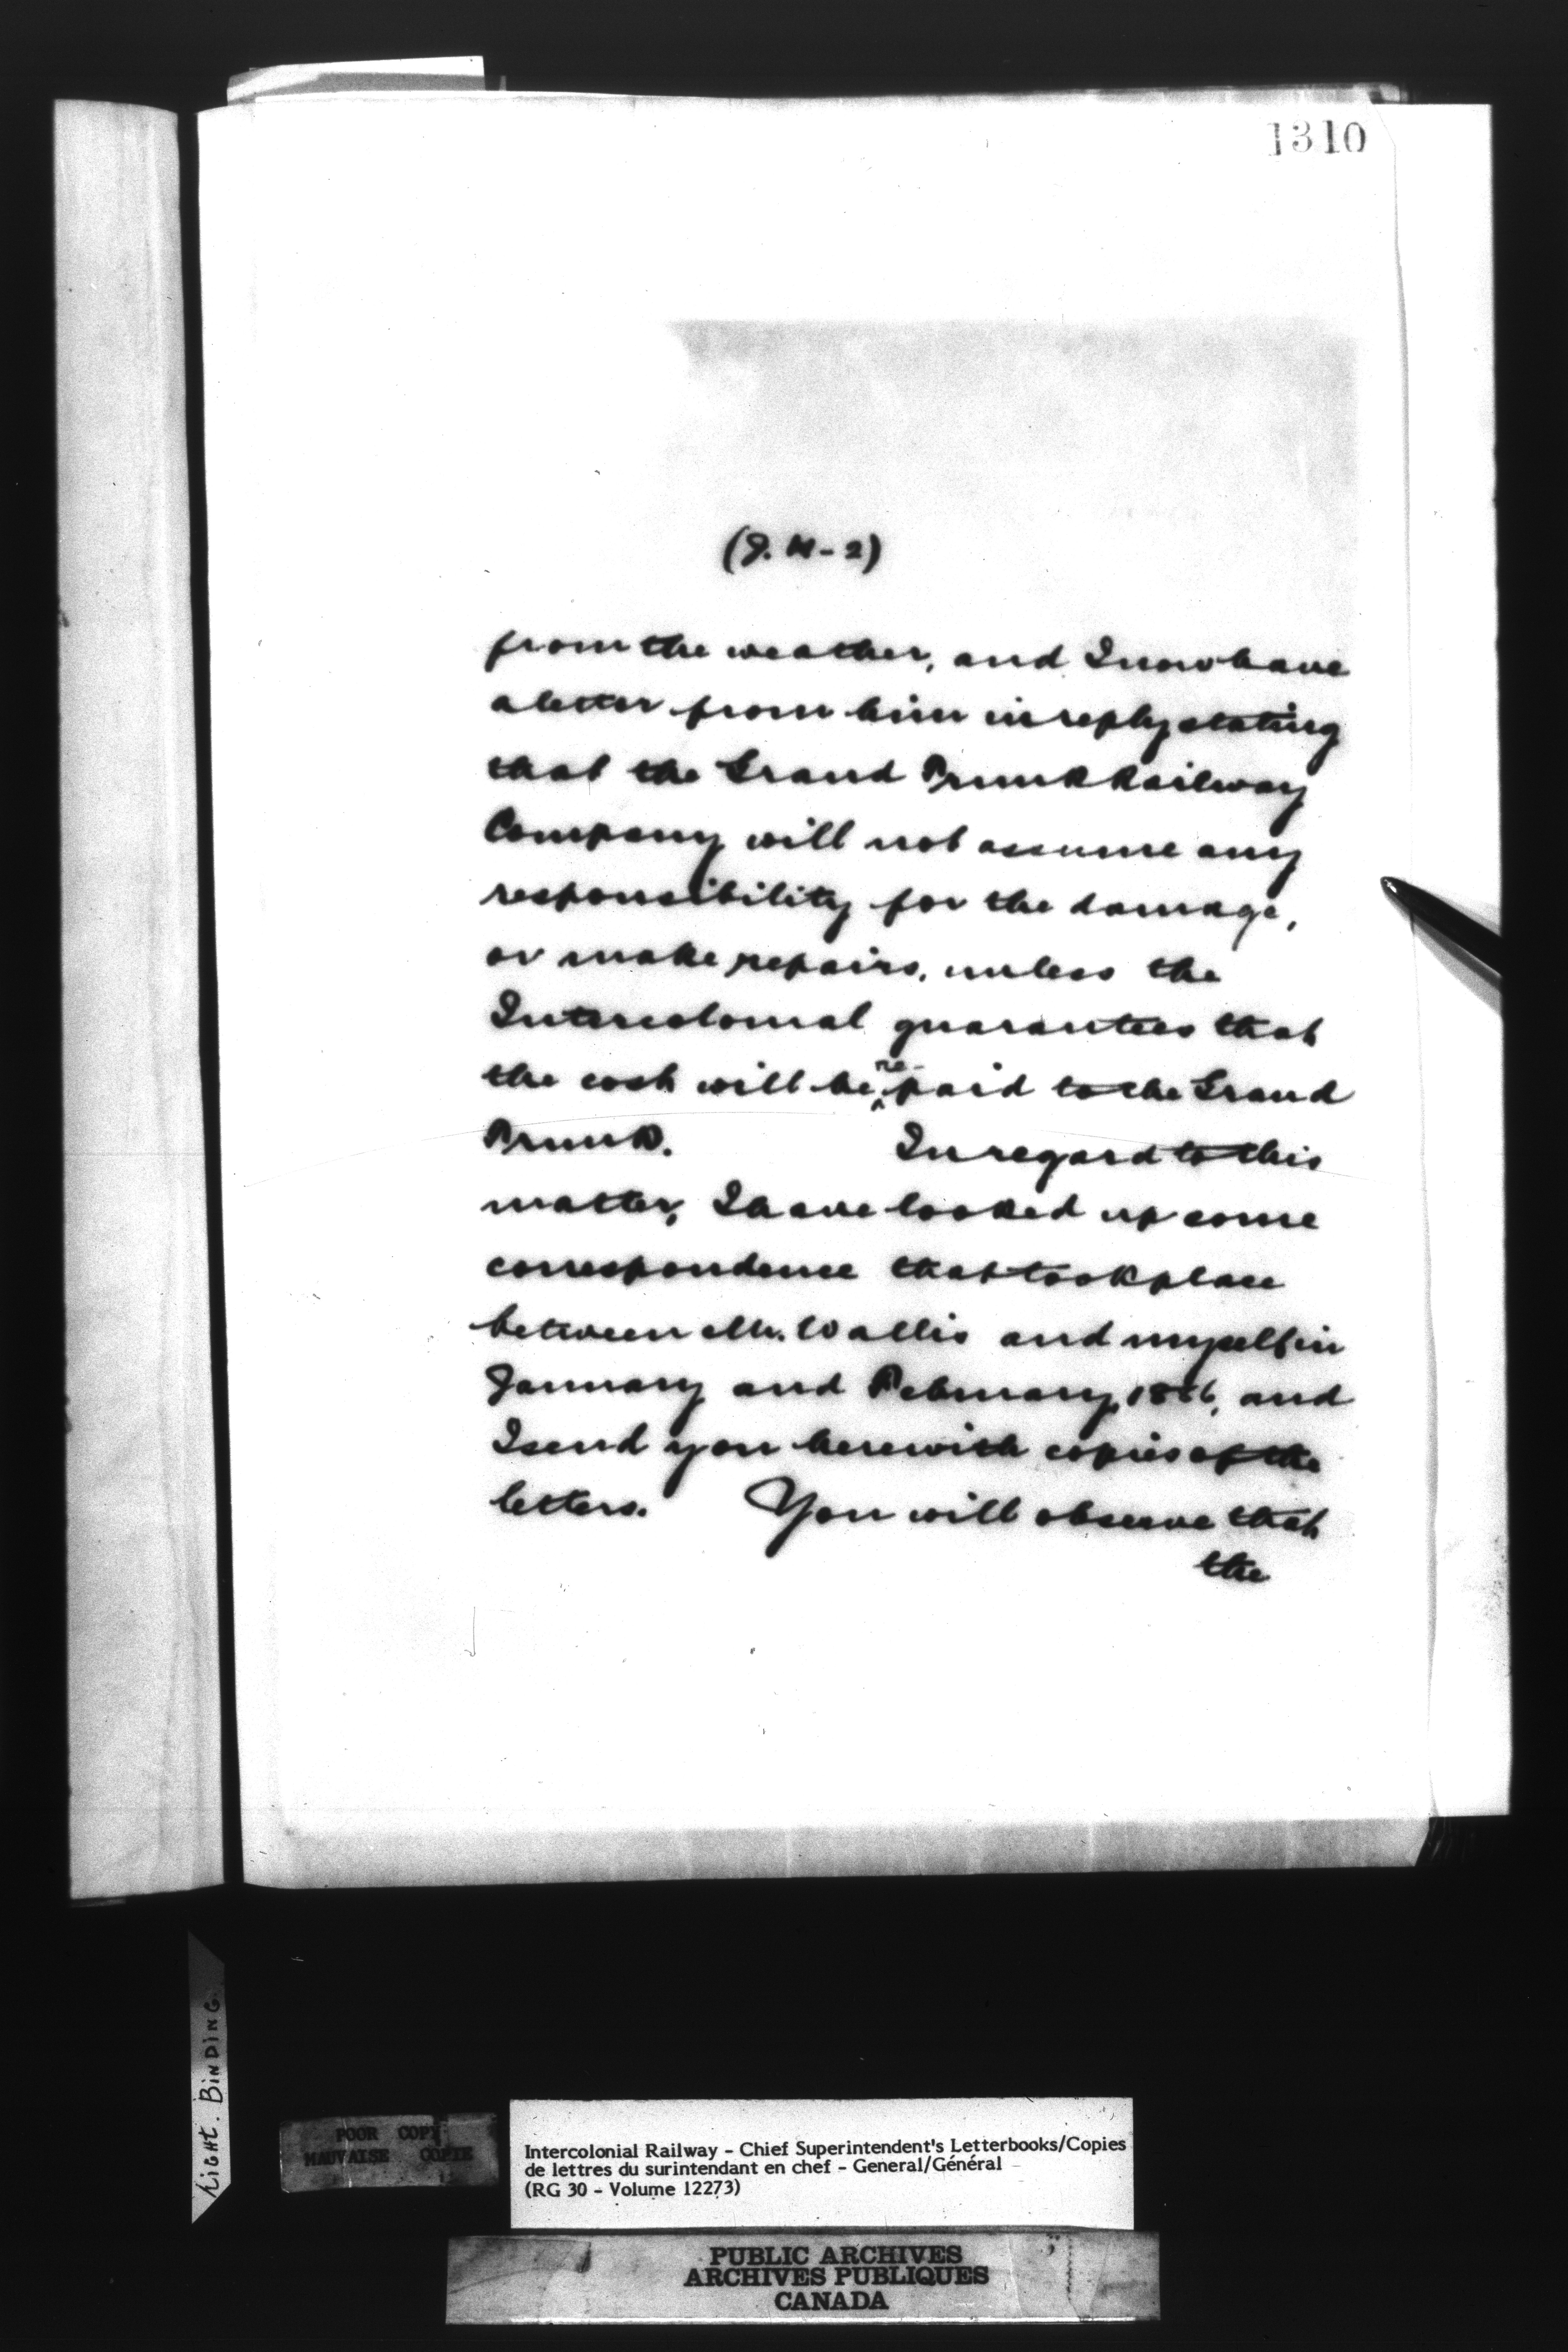 1310
(J. H - 2)
from the weather, and I now have
a letter from him in reply stating
that the Grand Trunk Railway
Company will not assume any
responsibility for the damage,
or make repairs, unless the
Intercolonial guarantees that
the cost will be re-paid to the Grand
Trunk. In regard to this
matter, I have looked up some
correspondence that took place
between Mr. Wallis and myself in
January and February, 1886, and
I send you herewith copies of the
letters. You will observe that
the
LIGHT. BINDING.
POOR COPY
MAUVAISE COPIE
Intercolonial Railway - Chief Superintendent's Letterbooks/Copies
de lettres du surintendant en chef - General/Général
(RG 30 - Volume 12273)
PUBLIC ARCHIVES
ARCHIVES PUBLIQUES
CANADA